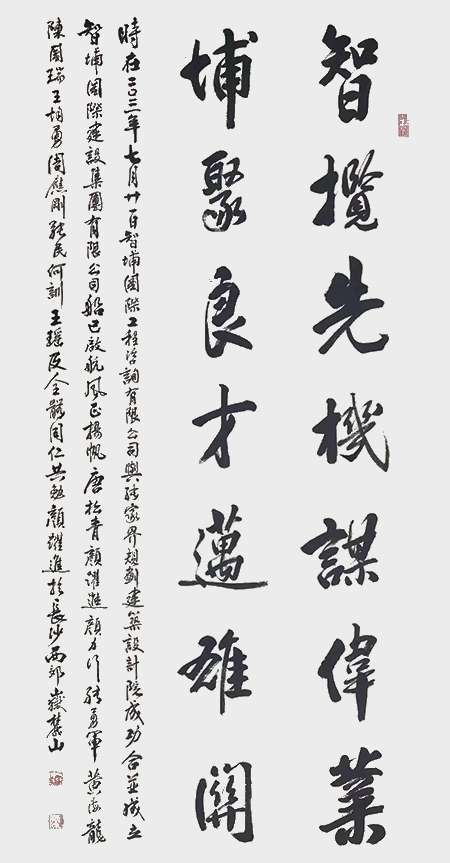 智攬先機謀偉業
埔聚良才邁雄關
時在二〇二三年七月廿日智埔國際工程咨詢有限公司與張家界規劃建築設計院成功合並成立
智埔國際建設集團有限公司船已啟航風正揚帆唐松青顏躍進顏力行張勇軍黃海龍
陳國瑞王均勇周應剛張民何訓王瑤及全體同仁共勉顏躍進於長沙西郊嶽麓山